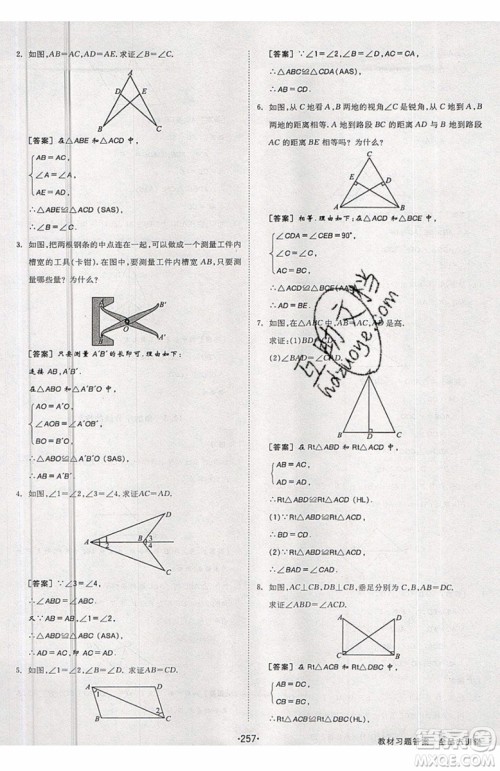 2. 如图,AB=AC,AD=AE. 求证∠B=∠C.
A
D E
B C
[答案] 在△ABE 和△ACD 中,
AB=AC,
∠A=∠A,
AE=AD,
∴△ABE≌△ACD (SAS),
∴∠B=∠C.
3. 如图,把两根钢条的中点连在一起,可以做成一个测量工件内
槽宽的工具(卡钳).在图中,要测量工件内槽宽AB,只要测
量哪些量?为什么?
O
[答案] 只要测量A'B'的长即可.理由如下:
连接 AB,A'B'.
在△AOB 和△A'OB' 中,
AO=A'O,
∠AOB=∠A'OB',
BO=B'O,
∴△AOB≌△A'OB' (SAS),
∴AB=A'B'.
4. 如图,∠1=∠2,∠3=∠4. 求证AC=AD.
D
A 1 2 B 3 4
C
[答案] ∵∠3=∠4,
∴∠ABD=∠ABC.
在△ABD 和△ABC 中,
∠1=∠2,
AB=AB,
∠ABD=∠ABC,
∴△ABD≌△ABC (ASA),
∴AC=AD.
5. 如图,∠1=∠2,∠B=∠D. 求证AB=CD.
A D
1
2
B C
[答案] ∵∠1=∠2,∠B=∠D,AC=CA,
∴△ABC≌△CDA (AAS),
∴AB=CD.
6. 如图,从C地看A,B两地的视角∠C是锐角,从C地到A,
B两地的距离相等.A地到路段BC的距离AD与B地到路段
AC的距离BE相等吗?为什么?
C
E D
A B
[答案] 相等.理由如下:在△ACD 和△BCE 中,
∠CDA=∠CEB=90°,
∠C=∠C,
AC=BC,
∴△ACD≌△BCE (AAS),
∴AD=BE.
7. 如图,在△ABC中,AB=AC,AD是高.
求证:(1)BD=CD;
(2)∠BAD=∠CAD.
互助文档
hdzuoye.com
B D C
[答案] 在Rt△ABD 和Rt△ACD 中,
AB=AC,
AD=AD,
∴Rt△ABD≌Rt△ACD (HL).
(1) ∵Rt△ABD≌Rt△ACD,
∴BD=CD.
(2) ∵Rt△ABD≌Rt△ACD,
∴∠BAD=∠CAD.
8. 如图,AC⊥CB,DB⊥CB,垂足分别为C,B,AB=DC.
求证∠ABD=∠ACD.
A D
C B
[答案] 在Rt△ACB 和Rt△DBC 中,
AB=DC,
CB=BC,
∴Rt△ACB≌Rt△DBC (HL),
∴∠ABC=∠DCB,
·257·
教材习题答案